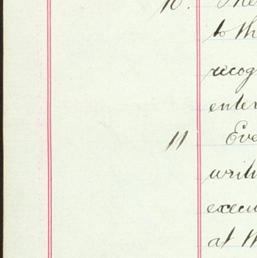 10. The
to th
recog
enter
11 Eve
writ
execu
at th